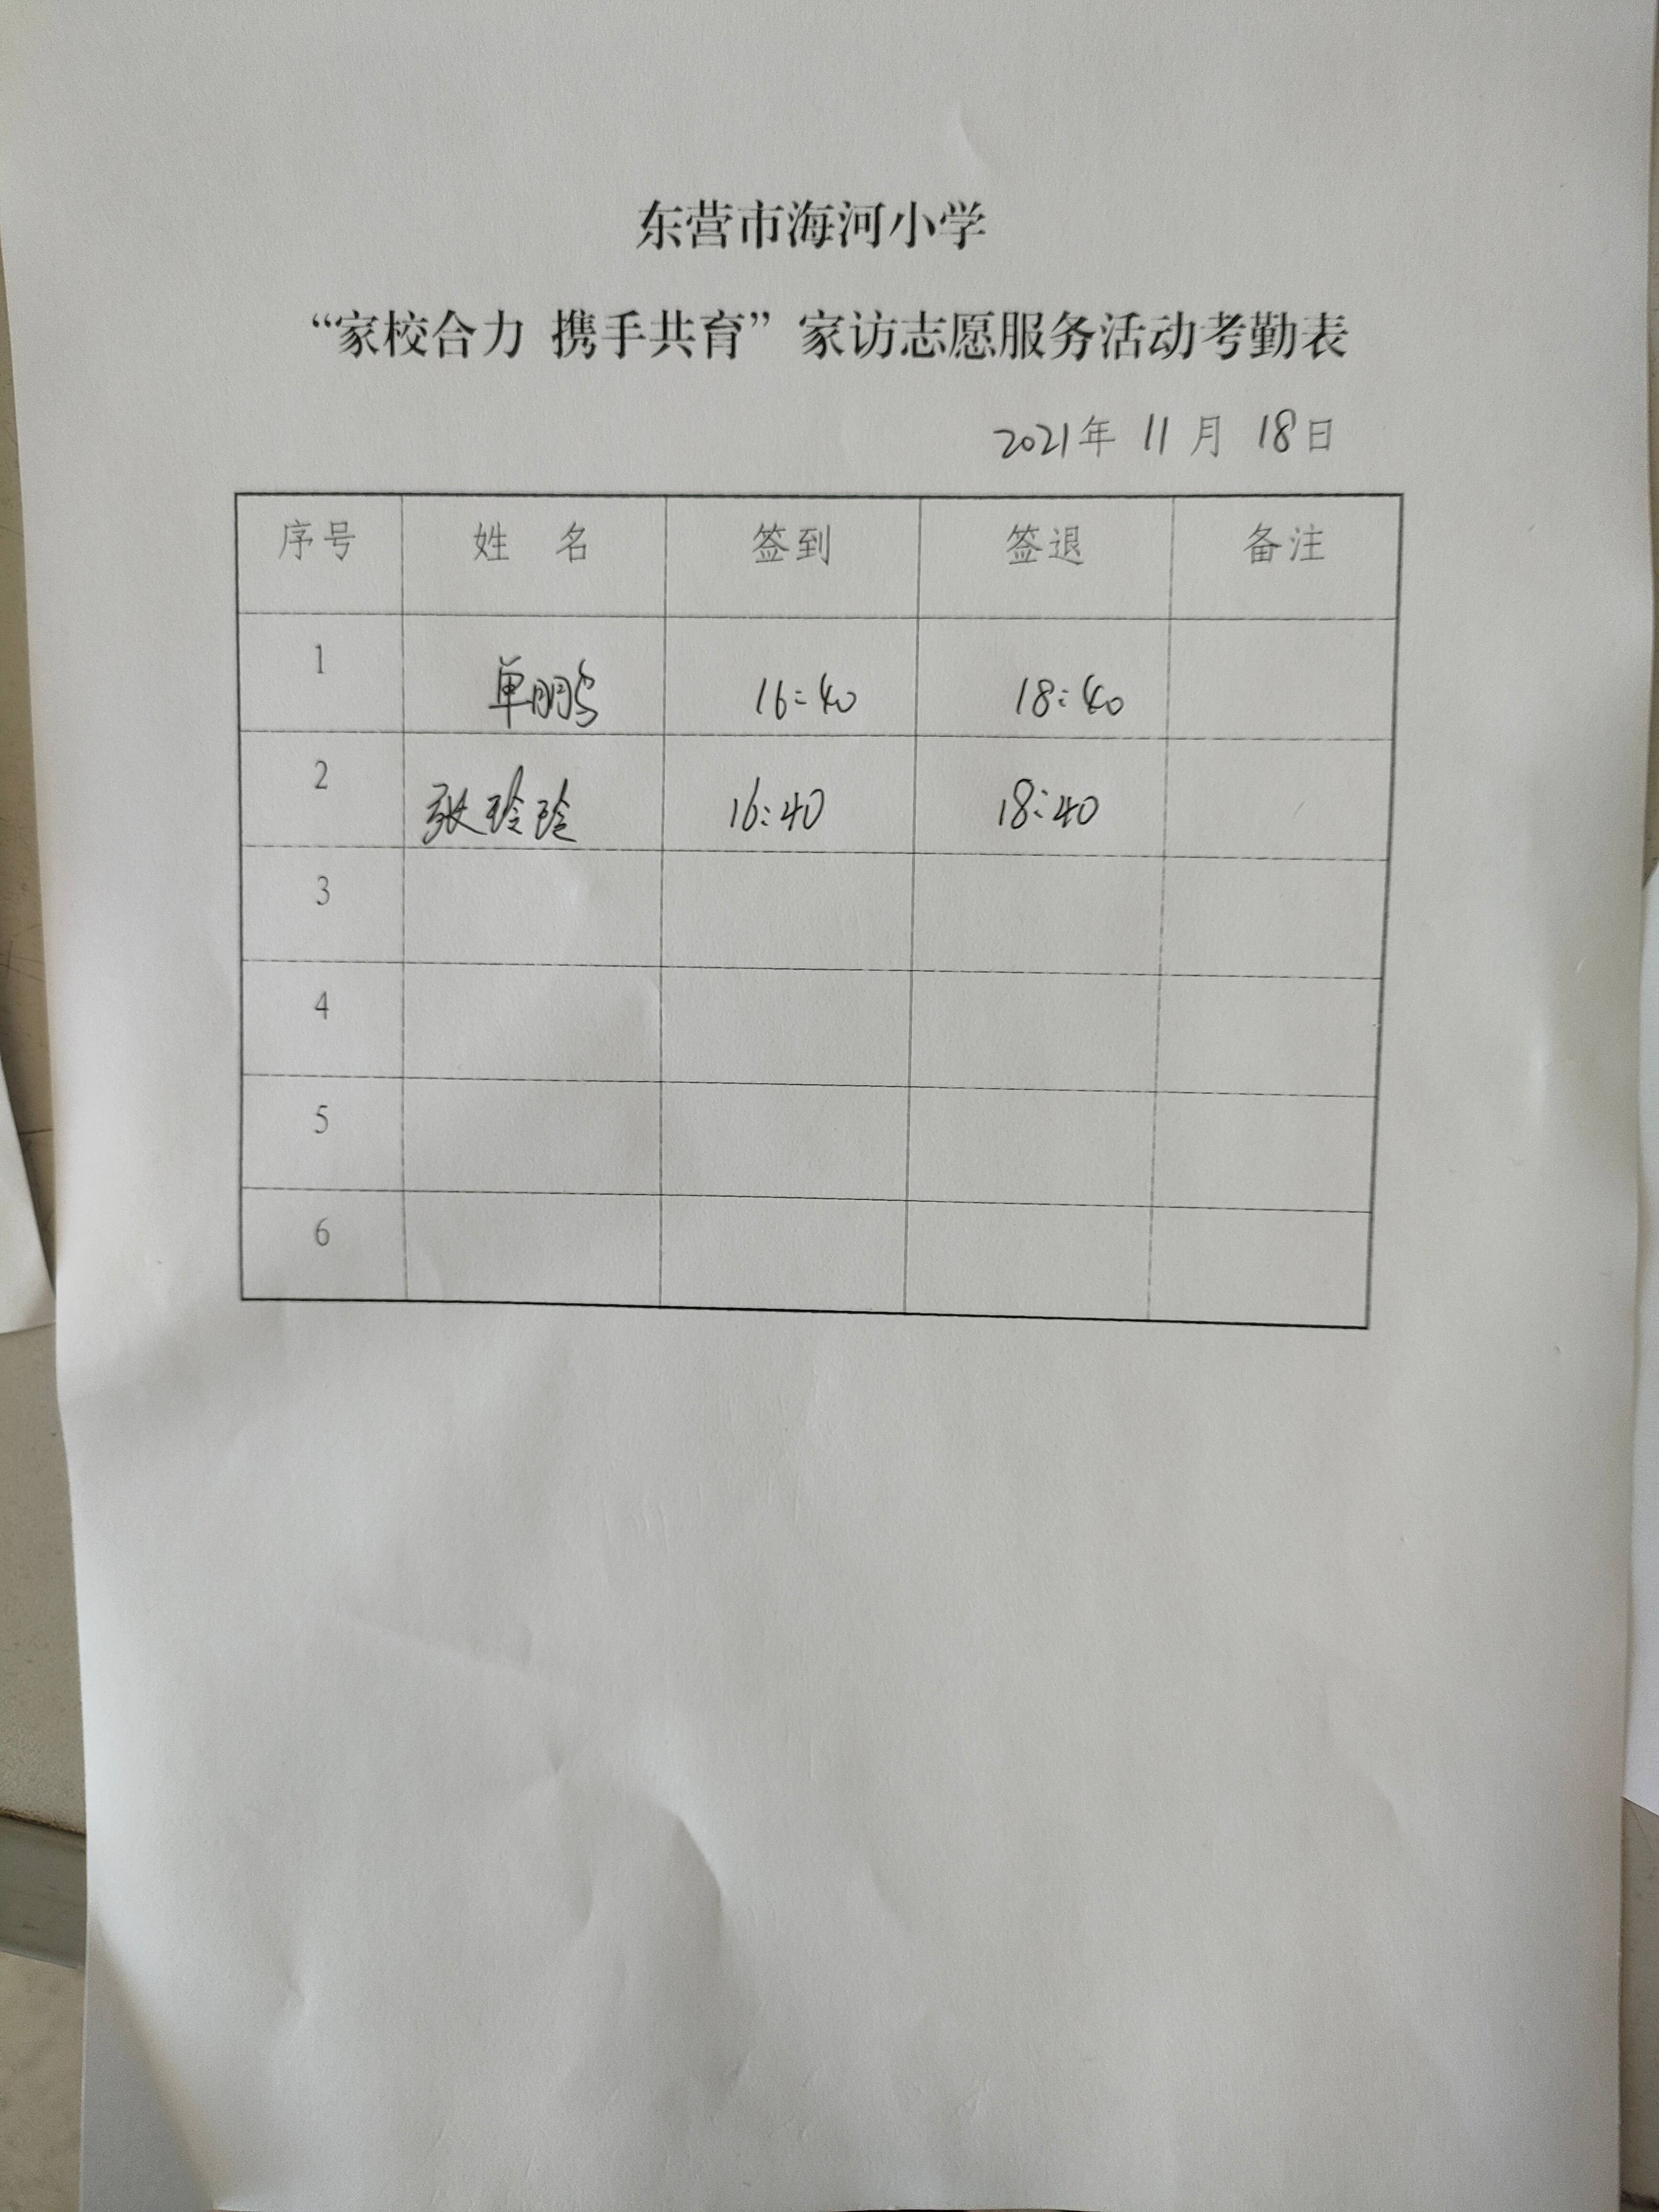 东营市海河小学
“家校合力 携手共育”家访志愿服务活动考勤表
2021年 11 月 18日
序号 姓 名 签到 签退 备注
1 单鹏 16:40 18:40
2 张玲玲 16:40 18:40
3
4
5
6